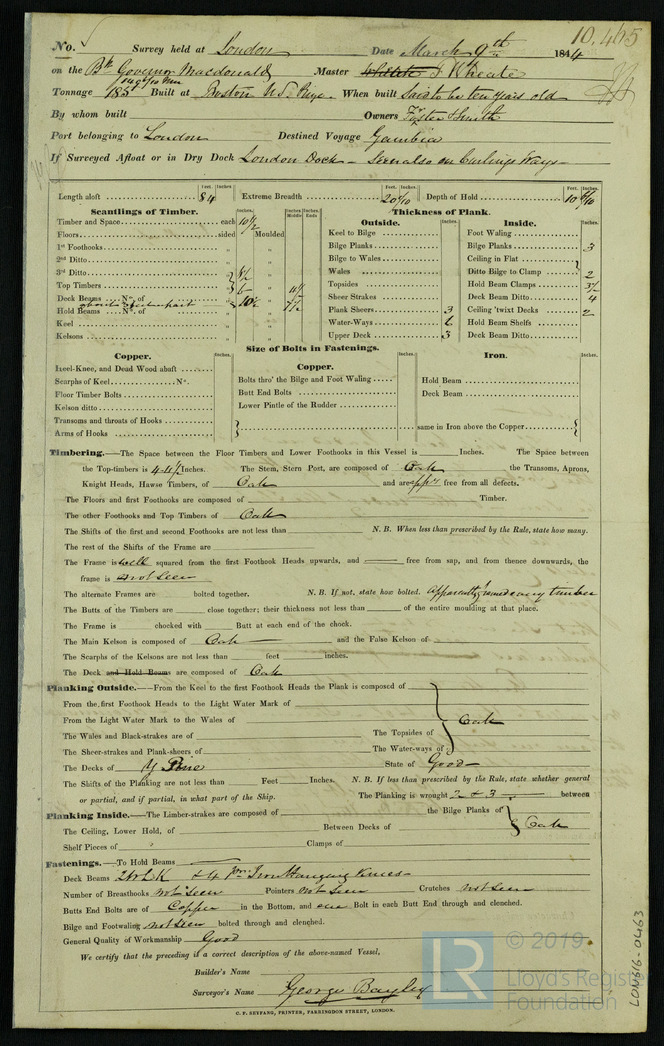 10,465
No. Survey held at London Date March 9th 1844
on the Bk Governor Macdonald Master Whittle J Wheate
Tonnage 185 Built at Boston U.S. When built Said to be ten years old
By whom built Owners Foster & Smith
Port belonging to London Destined Voyage Gambia
If Surveyed Afloat or in Dry Dock London Dock - Seen also on Curlings Ways -
Feet. Inches. Feet. Inches. Feet. Inches.
Length aloft 84 Extreme Breadth 20 Depth of Hold 10
Scantlings of Timber. Inches. Inches Middle Inches Ends Thickness of Plank.
Outside. Inches. Inside. Inches.
Timber and Space each 10½ Keel to Bilge Foot Waling
Floors sided Moulded Bilge Planks Bilge Planks 3
1st Foothooks „ „ Bilge to Wales Ceiling in Flat
2nd Ditto „ „ Wales Ditto Bilge to Clamp 2
3rd Ditto „ „ Topsides Hold Beam Clamps 3½
Top Timbers „ „ Sheer Strakes Deck Beam Ditto 4
Deck Beams No. of „ Plank Sheers 3 Ceiling 'twixt Decks 2
Hold Beams No. of „ Water-Ways Hold Beam Shelfs
Keel „ „ Upper Deck 3 Deck Beam Ditto
Kelsons „ „
Size of Bolts in Fastenings.
Copper. Inches. Copper. Inches. Iron. Inches.
Heel-Knee, and Dead Wood abaft Bolts thro' the Bilge and Foot Waling Hold Beam
Scarphs of Keel No. Butt End Bolts Deck Beam
Floor Timber Bolts Lower Pintle of the Rudder
Kelson ditto
Transoms and throats of Hooks same in Iron above the Copper
Arms of Hooks
Timbering.—The Space between the Floor Timbers and Lower Foothooks in this Vessel is Inches. The Space between
the Top-timbers is Inches. The Stem, Stern Post, are composed of Oak the Transoms, Aprons,
Knight Heads, Hawse Timbers, of Oak and are free from all defects.
The Floors and first Foothooks are composed of Timber.
The other Foothooks and Top Timbers of Oak
The Shifts of the first and second Foothooks are not less than N. B. When less than prescribed by the Rule, state how many.
The rest of the Shifts of the Frame are
The Frame is well squared from the first Foothook Heads upwards, and free from sap, and from thence downwards, the
frame is not seen
The alternate Frames are bolted together. N. B. If not, state how bolted. Apparently timber
The Butts of the Timbers are close together; their thickness not less than of the entire moulding at that place.
The Frame is chocked with Butt at each end of the chock.
The Main Kelson is composed of Oak and the False Kelson of
The Scarphs of the Kelsons are not less than feet inches.
The Deck and Hold Beams are composed of Oak
Planking Outside.—From the Keel to the first Foothook Heads the Plank is composed of
From the first Foothook Heads to the Light Water Mark of
From the Light Water Mark to the Wales of Oak
The Wales and Black-strakes are of The Topsides of
The Sheer-strakes and Plank-sheers of The Water-ways of
The Decks of Y Pine State of Good
The Shifts of the Planking are not less than Feet Inches. N. B. If less than prescribed by the Rule, state whether general
or partial, and if partial, in what part of the Ship. The Planking is wrought 2 & 3 between
Planking Inside.—The Limber-strakes are composed of the Bilge Planks of Oak
The Ceiling, Lower Hold, of Between Decks of
Shelf Pieces of Clamps of
Fastenings.—To Hold Beams
Deck Beams & 4 pr Iron Hanging Knees
Number of Breasthooks not seen Pointers not seen Crutches not seen
Butts End Bolts are of Copper in the Bottom, and one Bolt in each Butt End through and clenched.
Bilge and Footwaling not seen bolted through and clenched.
General Quality of Workmanship Good
We certify that the preceding is a correct description of the above-named Vessel,
Builder's Name
Surveyor's Name George Bayley
C. F. SEYFANG, PRINTER, FARRINGDON STREET, LONDON.
LON616-0463
LR © 2019
Lloyd's Register
Foundation